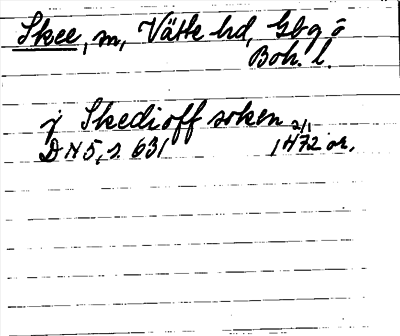 Skee, m, Vätte hd, Gbg o
Boh. l.
j Skedioff soken 2/1
DN 5, s. 631 1472 or.